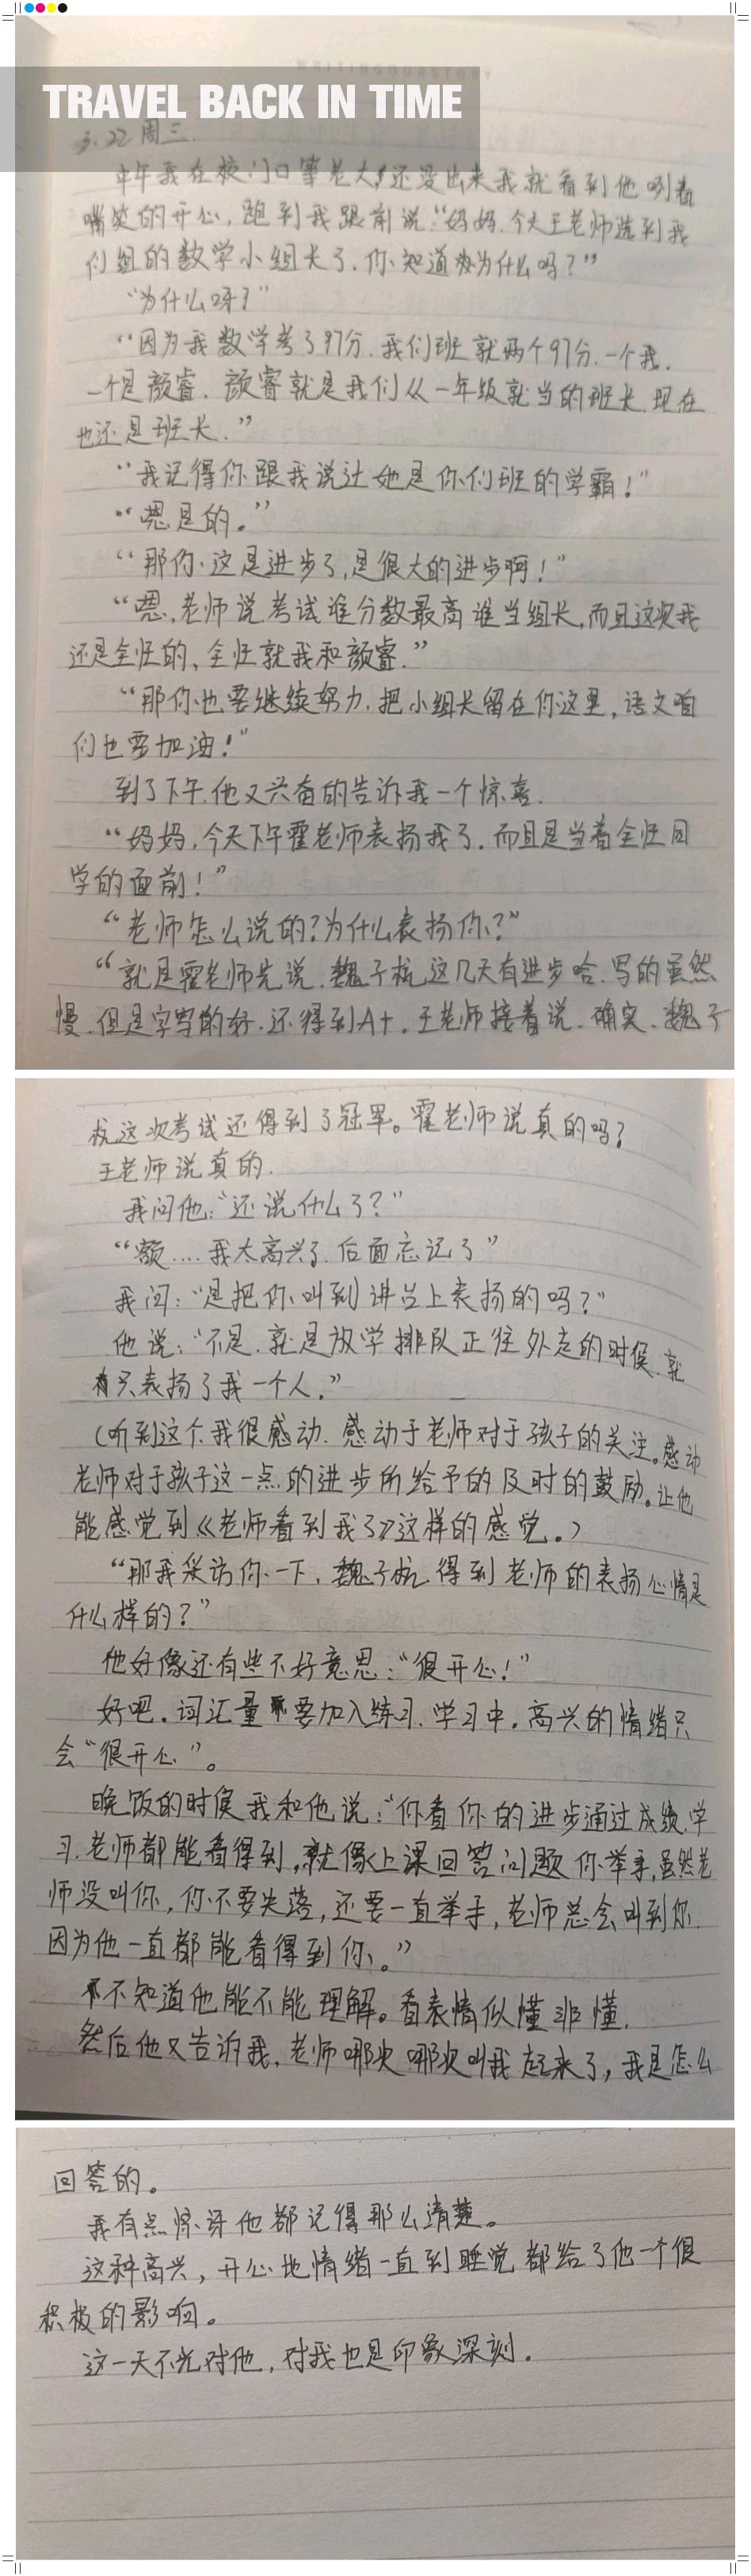 TRAVEL BACK IN TIME
3.22 周三.
中午我在校门口等老大,还没出来我就看到他咧着
嘴笑的开心,跑到我跟前说:“妈妈.今天王老师选到我
们组的数学小组长了.你知道为什么吗?”
“为什么呀?”
“因为我数学考了97分.我们班就两个97分.一个我.
一个是颜睿.颜睿就是我们从一年级就当的班长.现在
也还是班长.”
“我记得你跟我说过她是你们班的学霸!”
“嗯是的。”
“那你这是进步了,是很大的进步啊!”
“嗯,老师说考试谁分数最高谁当组长,而且这次我
还是全班的、全班就我和颜睿.”
“那你也要继续努力.把小组长留在你这里,语文咱
们也要加油!”
到了下午.他又兴奋的告诉我一个惊喜.
“妈妈,今天下午霍老师表扬我了.而且是当着全班同
学的面前!”
“老师怎么说的?为什么表扬你?”
“就是霍老师先说.魏子杭这几天有进步哈.写的虽然
慢.但是字写的好.还得到A+.王老师接着说.确实.魏子
杭这次考试还得到了冠军。霍老师说真的吗?
王老师说真的.
我问他:“还说什么了?”
“额....我太高兴了.后面忘记了”
我问:“是把你叫到讲台上表扬的吗?”
他说:“不是.就是放学排队正往外走的时候.就
只表扬了我一个人.”
(听到这个.我很感动.感动于老师对于孩子的关注。感动
老师对于孩子这一点的进步所给予的及时的鼓励。让他
能感觉到《老师看到我了》这样的感觉。)
“那我采访你一下,魏子杭得到老师的表扬心情是
什么样的?”
他好像还有些不好意思:“很开心!”
好吧。词汇量要加入练习.学习中。高兴的情绪只
会“很开心”。
晚饭的时候我和他说:“你看你的进步通过成绩.学
习.老师都能看得到,就像上课回答问题你举手,虽然老
师没叫你,你不要失落,还要一直举手,老师总会叫到你.
因为他一直都能看得到你。”
不知道他能不能理解。看表情似懂非懂.
然后他又告诉我,老师哪次哪次叫我起来了,我是怎么
回答的。
我有点惊讶他都记得那么清楚。
这种高兴,开心地情绪一直到睡觉都给了他一个很
积极的影响。
这一天不光对他,对我也是印象深刻.